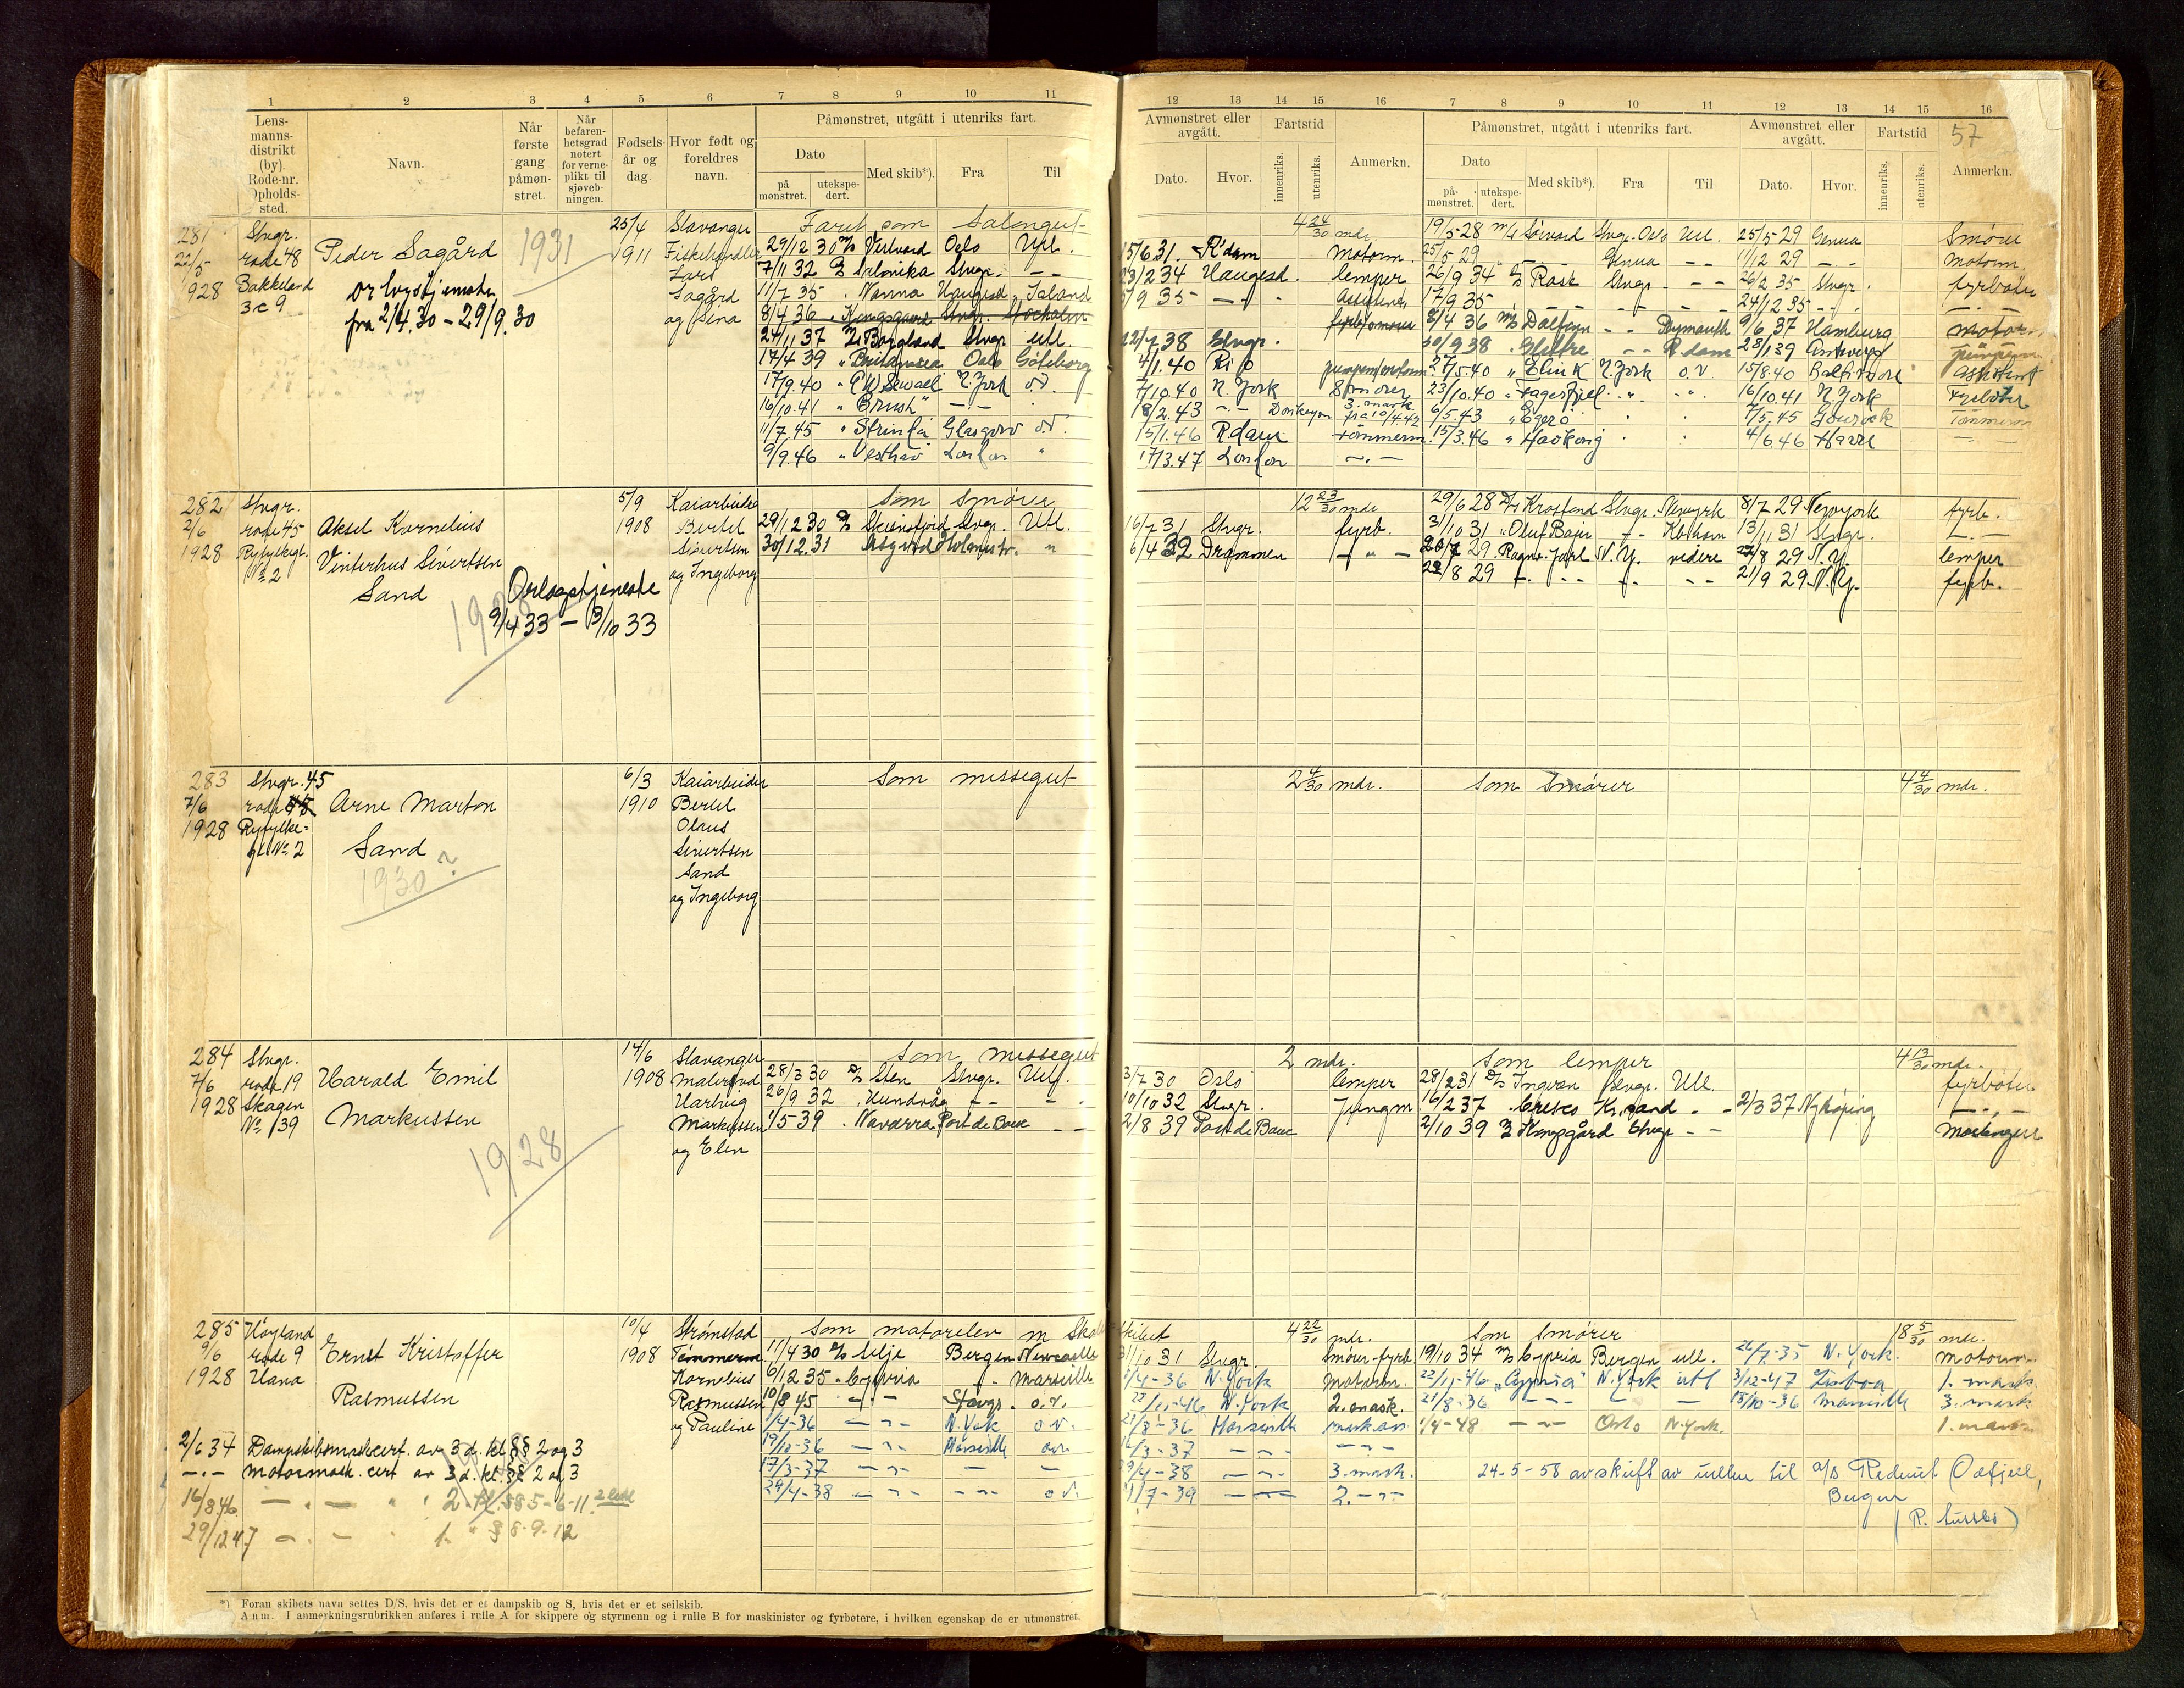 1 2 3 4 5 6 7 8 9 10 11
Lens-
manns-
distrikt
(by).
Rode-nr.
Opholds-
sted.
Navn.
Når
første
gang
påmøn-
stret.
Når
befaren-
hetsgrad
notert
for verne-
plikt til
sjøveb-
ningen.
Fødsels-
år og
dag
Hvor født og
foreldres
navn.
Påmønstret, utgått i utenriks fart.
Dato
på
mønstret.
utekspe-
dert.
Med skib*).
Fra
Til
281 Stvgr. 25/4 Stavanger Farit som salongut-
22/5 rode 48 Peder Sagård 1931 1911 Fiskehandler 29/12 30 Oslo Utl.
1928 Bakkeland Lars 7/11 32 D/S Salonika Stvgr. - -
3c 9 Sagård 11/7 35 Nanna Haugesd. Island
fra 2/4.30 - 29/9.30 og Sina 8/4 36 Kongsgaard Stvgr. Stocholm
24/11 37 Borgland Stvgr. utl.
17/4 39 Oslo Göteborg
17/9.40 " E W Sewael N. York o.v.
16/10.41 " Brush" - -
11/7.45 " Strinda Glasgow o.v.
9/9.46 " Vesthav London "
282 Stvgr. 5/9 Kaiarbeider Som smører
2/6 rode 45 Aksel Kornelius 1908 Bertel 29/12 30 D/S Skiensfjord Stvgr. Utl.
1928 Ryfylkegt. Vinterhus Sivertsen Sivertsen 30/12.31 Asgerd Holmestr. "
No 2 Sand og Ingeborg
Orlogstjeneste
1928 9/4 33 - 3/10 33
283 Stvgr. 45 6/3 Kaiarbeider Som messegut
7/6 rode 48 Arne Marton 1910 Bertel
1928 Ryfylke= Olaus
gt No 2 Sand Sivertsen
1930? Sand
og Ingeborg
284 Stvgr. 14/6 Stavanger Som messegut
7/6 rode 19 Harald Emil 1908 28/3 30 D/S Sten Stvgr. Utl.
1928 Skagen Hartvig 26/9 32 Hundvåg - - -
No 39 Markussen Markussen 1/5 39 Navarra Port de Bouc - -
1928 og Elen
285 Høyland 10/4 Strømstad Som motorelev m Skol
9/6 rode 9 Ernst Kristoffer 1908 Tømmerm. 11/4 30 D/S Silje Bergen Newcastle
1928 Hana Kornelius 6/12 35 Cypria - Marseille
Rasmussen Rasmussen 10/8 45 - - Stavgr. o.v.
og Pauline 1/4-36 - " - N. York o.v.
2/6 34 Dampskibsmask.cert. av 3 d. kl. §§ 2 og 3 19/10-36 - " - Marseille o.v.
- . - Motormask. cert av 3 d. kl. §§ 2 og 3 17/3-37 - " - - -
16/8 46 - . - " 2. kl. §§ 5-6-11. 29/4-38 - " - - " - o.v.
29/12 47 - . - " 1. " § 8-9-12
*) Foran skibets navn settes D/S, hvis det er et dampskib og S, hvis det er et seilskib.
Anm. I anmerkningsrubrikken anføres i rulle A for skippere og styrmenn og i rulle B for maskinister og fyrbøtere, i hvilken egenskap de er utmønstret.
12 13 14 15 16 7 8 9 10 11 12 13 14 15 16
Avmønstret eller
avgått.
Fartstid
Dato.
Hvor.
innenriks.
utenriks.
Anmerkn.
Påmønstret, utgått i utenriks fart.
Dato
på-
mønstret.
utekspe-
dert.
Med skib*).
Fra
Til
Avmønstret eller
avgått.
Fartstid
57
Dato.
Hvor.
innenriks.
utenriks.
Anmerkn.
4 24/30 mdr. 19/5-28 m/s Stvgr. Oslo Utl. 25/5-29 Genua Smører
15/6 31. R'dam Motorm. 25/5 29 Genua - - 11/12 29 - . - motorm
23/2 34 Haugesd. lemper 26/9 34 D/S Rask Stvgr. - - 26/2 35 Stvgr. fyrbøter
5/9 35 - " - Assistent 17/9 35 - - - 24/12 35 - . -
8/4 36 M/S Dalfonn - - Plymouth 9/6 37 Hamburg motorm.
22/7 38 Stvgr. 30/9 38 Glittre - - R.dam 28/1 39 Antwerp pumpem
4/1.40 Rio 27/5.40 " Elin K N. York o.v. 15/8.40 Baltimore Assistent
7/10.40 N. York Smører 23/10.40 " Fagerfjel " " 16/10.41 N. York Fyrbøter
18/2.43 - - Donkeym 3. mask fra 10/4.42 6/5.43 " Egerø " " 7/5.45 Gourock Tømmerm
15/1.46 R.dam tømmerm. 15/3.46 " Havkong " " 4/6 46 Havre - -
17/3.47 London - . -
12 23/30 mdr 29/6 28 D/S Krosfond Stvgr. Newyork 8/7 29 Newyork fyrb.
16/7 31 Stvgr. fyrb. 31/10 31 " Oluf Bajer - " - Kbhavn 13/11 31 Stvgr. - . -
6/4 32 Drammen - " - 20/7 29. Ragnv. Jarl N.Y. videre 22/8 29 N.Y. lemper
22/8 29 - . - - - - . - - - 21/9 29. N.Y. fyrb.
2 4/30 mdr. Som Smører 4 4/30 mdr.
2 mdr. Som lemper 4 13/30 mdr.
3/7 30 Oslo lemper 28/2 31 D/S Ingvan Stvgr. Utl. fyrbøter
10/10 32 Stvgr. Jungm 16/2 37 Kr.sand - - 2/3 37 Nykøping - " -
2/8 39 Port de Bouc 2/10 39 Kongsgård Stvgr. - -
Skibet 4 22/30 mdr. Som Smører 18 5/30 mdr.
31/10 31 Stvgr. Smører-fyrb. 19/10 34 M/S Cypria Bergen utl. 26/7-35 N. York. motorm
1/4-36 N. York motorm. 22/11-46 "Cypria" N. York utl 3/12-47 Lisboa 1. mask.
22/11-46 N. York 2. mask. 21/8-36 - " - - - 18/10-36 Marseille 3. mask
21/8-36 Marseille mask.ass 1/4-48 - " - Oslo N. York. 1. mask
17/3-37 - " - - " -
29/4-38 - " - 3. mask. 24-5-58 avskrift av rullen til a/s Rederiet Odfjell,
1/7-39 - " - 2. - " - Bergen